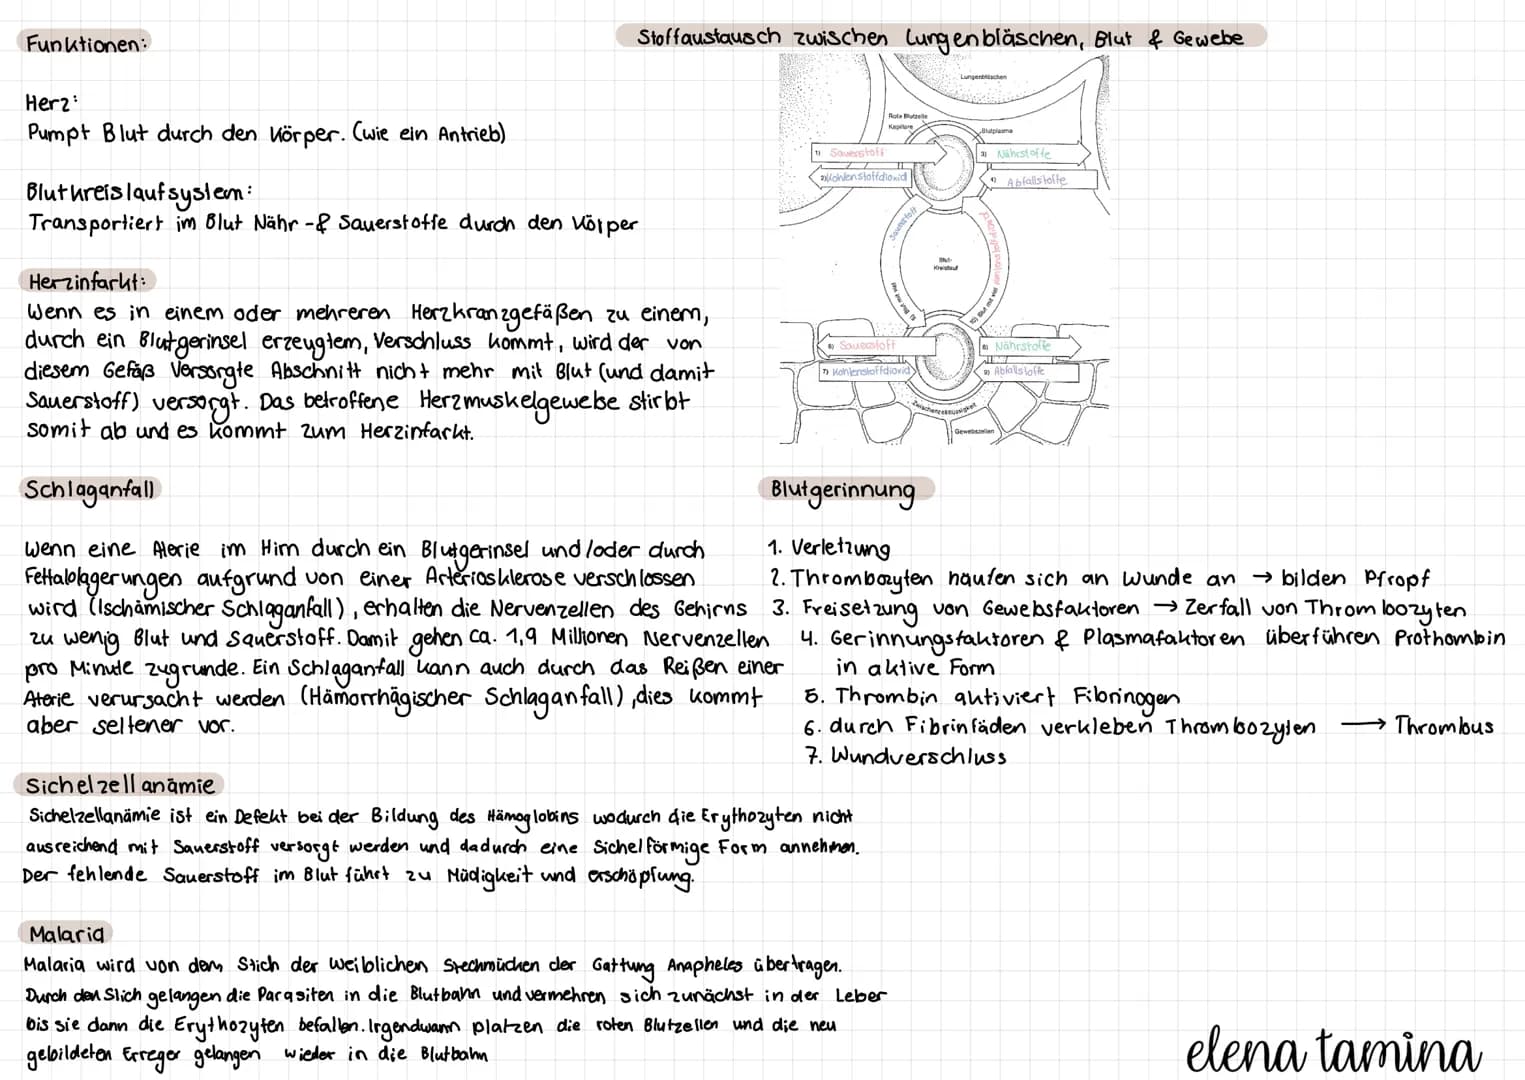 Funktionen:
Herz:
Pumpt Blut durch den Körper. (wie ein Antrieb)
Blutkreislaufsystem:
Transportiert im Blut Nähr-& Sauerstoffe durch den Körper
Herzinfarkt:
Wenn es in einem oder mehreren Herzkranzgefäßen zu einem,
durch ein Blutgerinsel erzeugtem, Verschluss kommt, wird der von
diesem Gefäß Versorgte Abschnitt nicht mehr mit Blut (und damit
Sauerstoff) versorgt. Das betroffene Herzmuskelgewebe stirbt
somit ab und es kommt zum Herzinfarkt.
Stoffaustausch zwischen Lungenbläschen, Blut & Gewebe
Lungenbläschen
Rote Blutzelle
Kapillare
Blutplasma
1) Sauerstoff
3) Nährstoffe
2) Kohlenstoffdioxid
4) Abfallstoffe
Sauerstoff
Kohlenstoffdioxid
Blut-
Kreislauf
5) Blut mit viel
10) Blut mit viel
6) Sauerstoff
8) Nährstoffe
7) Kohlenstoffdioxid
9) Abfallstoffe
Zwischenzellflüssigkeit
Gewebszellen
Schlaganfall
Wenn eine Aterie im Hirn durch ein Blutgerinsel und/oder durch
Fettablagerungen aufgrund von einer Arteriosklerose verschlossen
wird (Ischämischer Schlaganfall), erhalten die Nervenzellen des Gehirns
zu wenig Blut und Sauerstoff. Damit gehen ca. 1,9 Millionen Nervenzellen
pro Minute zugrunde. Ein Schlaganfall kann auch durch das Reißen einer
Aterie verursacht werden (Hämorrhägischer Schlaganfall), dies kommt
aber seltener vor.
Blutgerinnung
1. Verletzung
2. Thrombozyten häufen sich an Wunde an → bilden Pfropf
3. Freisetzung von Gewebsfaktoren → Zerfall von Thrombozyten
4. Gerinnungsfaktoren & Plasmafaktoren überführen Prothombin
in aktive Form
5. Thrombin aktiviert Fibrinogen
6. durch Fibrinfäden verkleben Thrombozyten → Thrombus
7. Wundverschluss
Sichelzellanämie
Sichelzellanämie ist ein Defekt bei der Bildung des Hämoglobins wodurch die Erythozyten nicht
ausreichend mit Sauerstoff versorgt werden und dadurch eine Sichelförmige Form annehmen.
Der fehlende Sauerstoff im Blut führt zu Müdigkeit und erschöpfung.
Malaria
Malaria wird von dem Stich der weiblichen Stechmücken der Gattung Anapheles übertragen.
Durch den Stich gelangen die Parasiten in die Blutbahn und vermehren sich zunächst in der Leber
bis sie dann die Erythozyten befallen. Irgendwann platzen die roten Blutzellen und die neu
gebildeten Erreger gelangen wieder in die Blutbahn
elena tamina